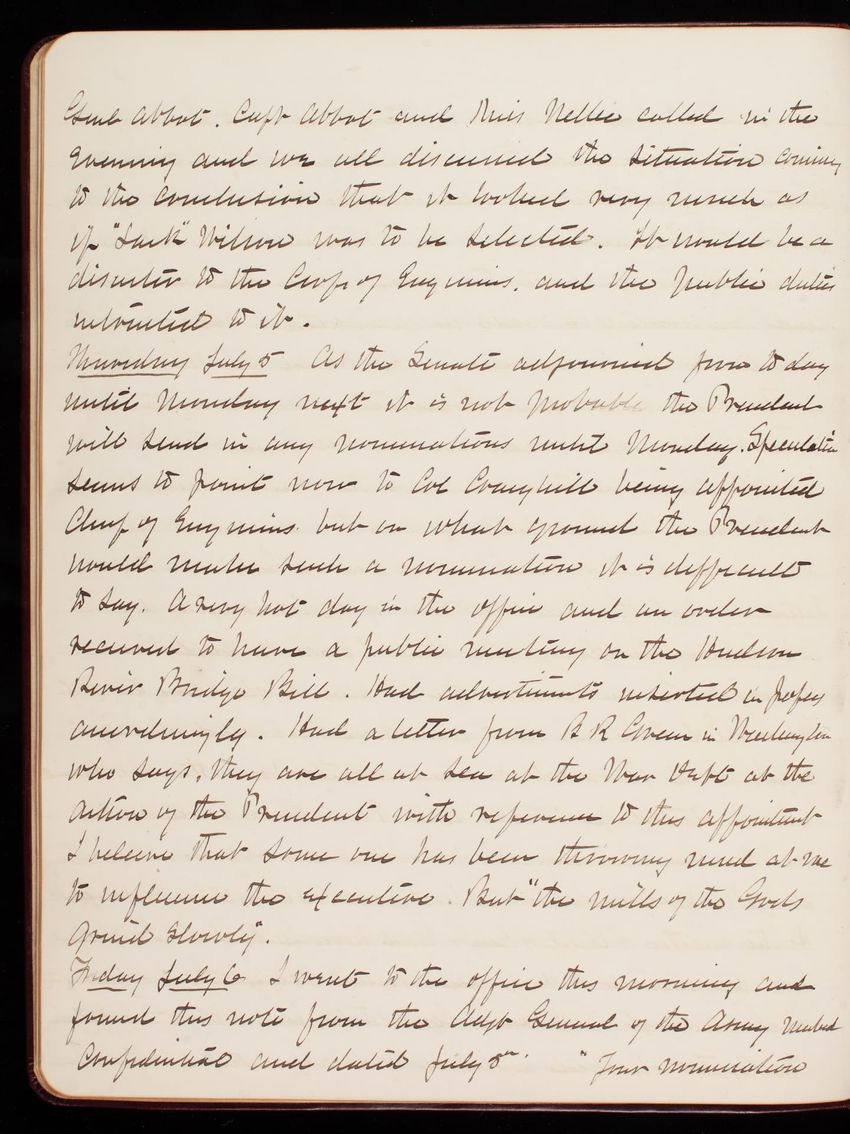 Genl Abbot. Capt Abbot and Miss Nellie called in the
evening and we all discussed the situation coming
to the conclusion that it looked very much as
if "Jack" Wilson was to be selected. It would be a
disaster to the Corps of Engineers. and the public duties
intrusted to it.
Thursday July 5 As the Senate adjourned from to day
until Monday next it is not probable the President
will send in any nominations until Monday. Speculation
seems to point now to Col Craighill being appointed
Chief of Engineers but on what ground the President
would make such a nomination it is difficult
to say. A very hot day in the office and an order
received to have a public meeting on the Hudson
River Bridge Bill. Had advertisements inserted in papers
accordingly. Had a letter from B R Green in Washington
who says, they are all at sea at the War Dept at the
action of the President with reference to this appointment
I believe that some one has been throwing mud at me
to influence the executive. But "the mills of the Gods
grind slowly".
Friday July 6 I went to the office this morning and
found this note from the Adjt General of the Army marked
Confidential and dated July 5th. "Your nomination